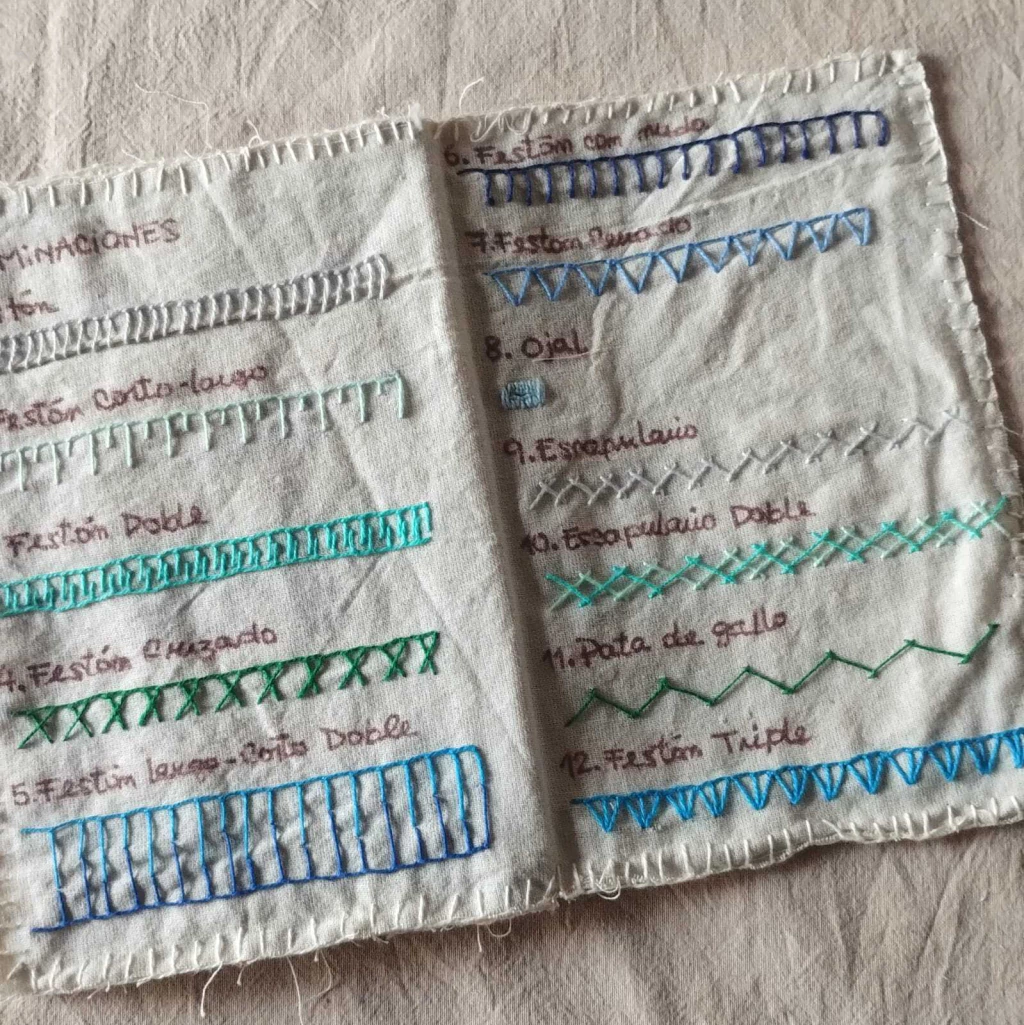 MINACIONES
tón
Festón Corto-largo
Festón Doble
4. Festón Cruzado
5. Festón largo-corto Doble
6. Festón con nudo
7. Festón
8. Ojal
9. Escapulario
10. Escapulario Doble
11. Pata de gallo
12. Festón Triple